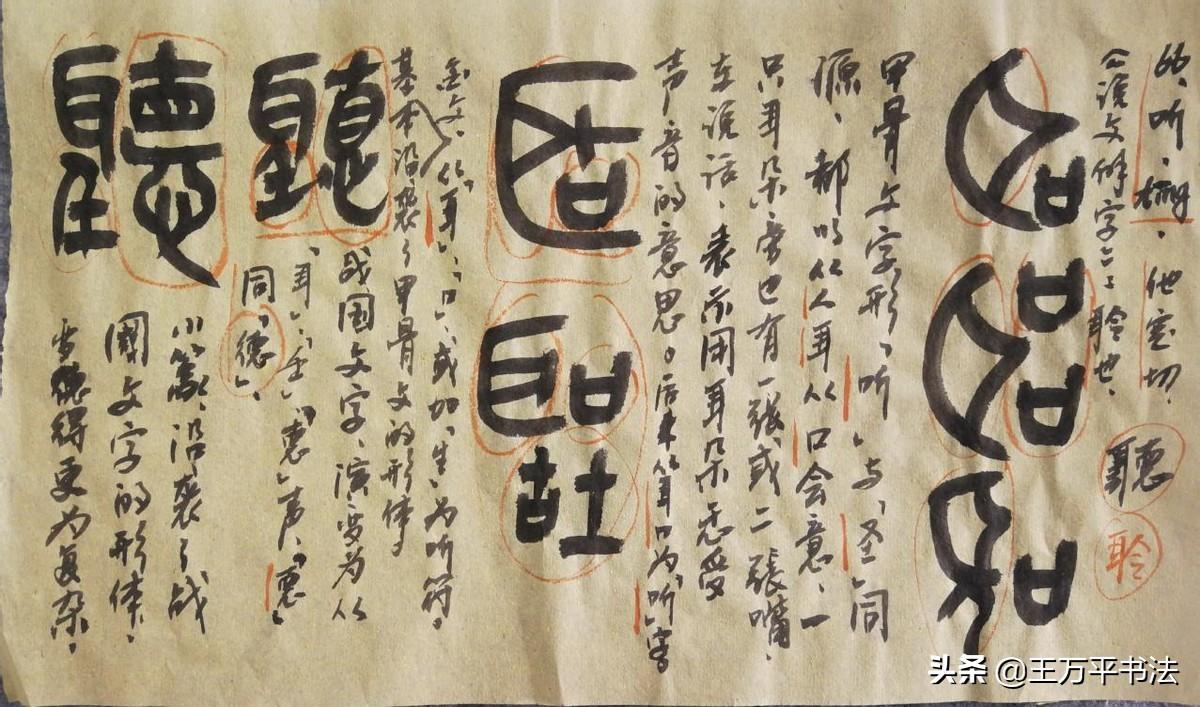 《说文解字》：聆也。
聽
聆
甲骨文字形，「听」与「圣」同
源，都以从人耳从口会意，一
只耳朵旁边有一张或二张嘴，
在说话，表示用耳朵感受
声音的意思。后来从耳口为「听」字
金文，从「耳」、「口」，或加「生」为听符。
基本沿袭了甲骨文的形体。
战国文字，演变为从
「耳」「壬」「悳」声，「悳」
同「德」。
小篆，沿袭了战
国文字的形体，
变得更为复杂。
头条 @王万平书法